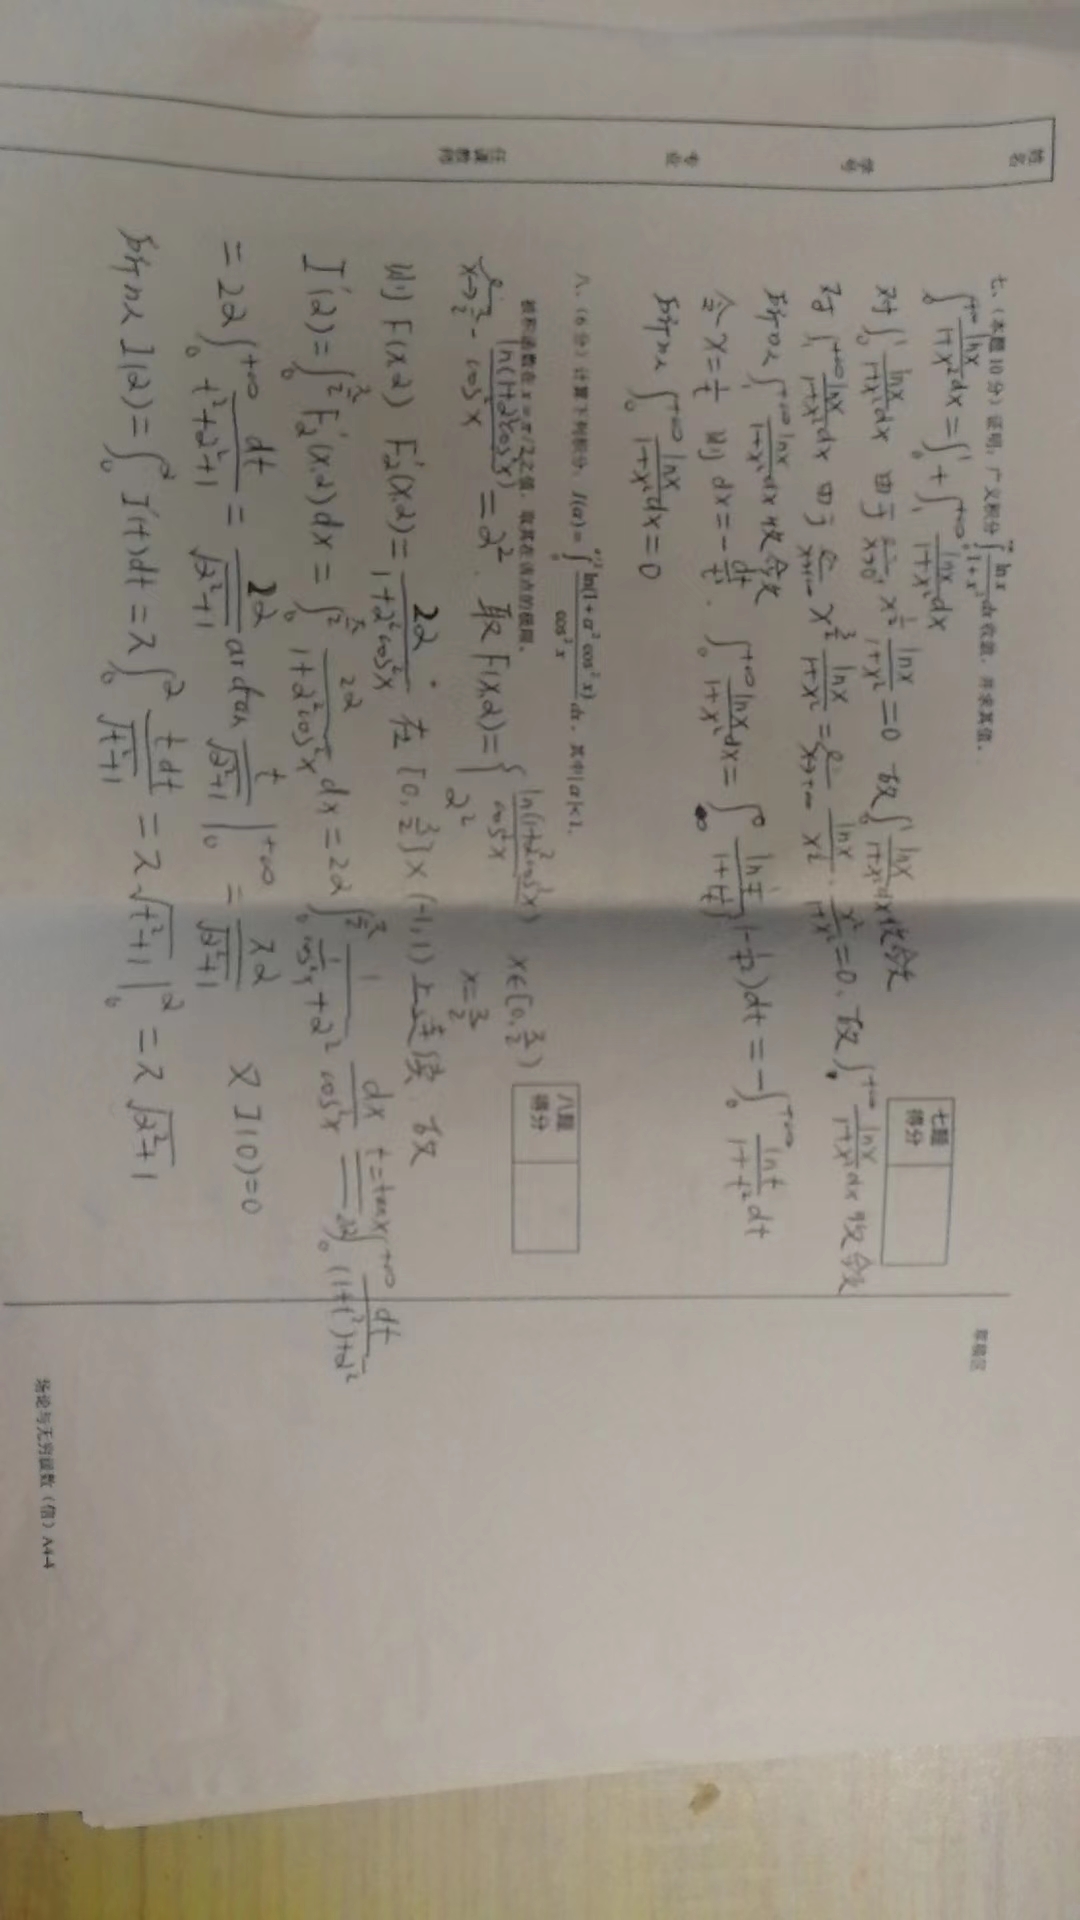 姓名
学号
专业
任课教师
草稿区
七、(本题10分)证明:广义积分∫₀^{+∞} ln x/(1+x²) dx 收敛,并求其值。
七题得分
∫₀^{+∞} lnx/(1+x²) dx = ∫₀¹ + ∫₁^{+∞} lnx/(1+x²) dx
对 ∫₀¹ lnx/(1+x²) dx 由于 lim_{x→0⁺} x^{1/2} lnx/(1+x²) = 0 故 ∫₀¹ lnx/(1+x²) dx 收敛
对 ∫₁^{+∞} lnx/(1+x²) dx 由于 lim_{x→+∞} x^{3/2} lnx/(1+x²) = lim_{x→+∞} lnx/x^{1/2} · x²/(1+x²) = 0. 故 ∫^{+∞} lnx/(1+x²) dx 收敛
所以 ∫₁^{+∞} lnx/(1+x²) dx 收敛
令 x = 1/t 则 dx = -dt/t². ∫₀^{+∞} lnx/(1+x²) dx = ∫_∞^0 ln(1/t)/(1+(1/t)²) (-1/t²)dt = -∫₀^{+∞} lnt/(1+t²) dt
所以 ∫₀^{+∞} lnx/(1+x²) dx = 0
八、(6分)计算下列积分:I(α)=∫₀^{π/2} ln(1+α²cos²x)/cos²x dx,其中|α|<1.
八题得分
被积函数在 x=π/2 之值,取其在该点的极限。
lim_{x→π/2-} ln(1+α²cos²x)/cos²x = α². 取 F(x,α) = { ln(1+α²cos²x)/cos²x x∈[0,π/2)
α² x=π/2
则 F(x,α) F'_α(x,α) = 2α/(1+α²cos²x) 在 [0,π/2]×(-1,1) 上连续 故
I'(α) = ∫₀^{π/2} F'_α(x,α) dx = ∫₀^{π/2} 2α/(1+α²cos²x) dx = 2α ∫₀^{π/2} 1/(1/cos²x + α²) dx/cos²x = (t=tanx) 2α ∫₀^{+∞} dt/((1+t²)+α²)
= 2α ∫₀^{+∞} dt/(t²+α²+1) = 2α/√(α²+1) arctan t/√(α²+1) |₀^{+∞} = πα/√(α²+1) 又 I(0)=0
所以 I(α) = ∫₀^α I'(t)dt = π ∫₀^α tdt/√(t²+1) = π √(t²+1) |₀^α = π √(α²+1)
场论与无穷级数(信)A4-4